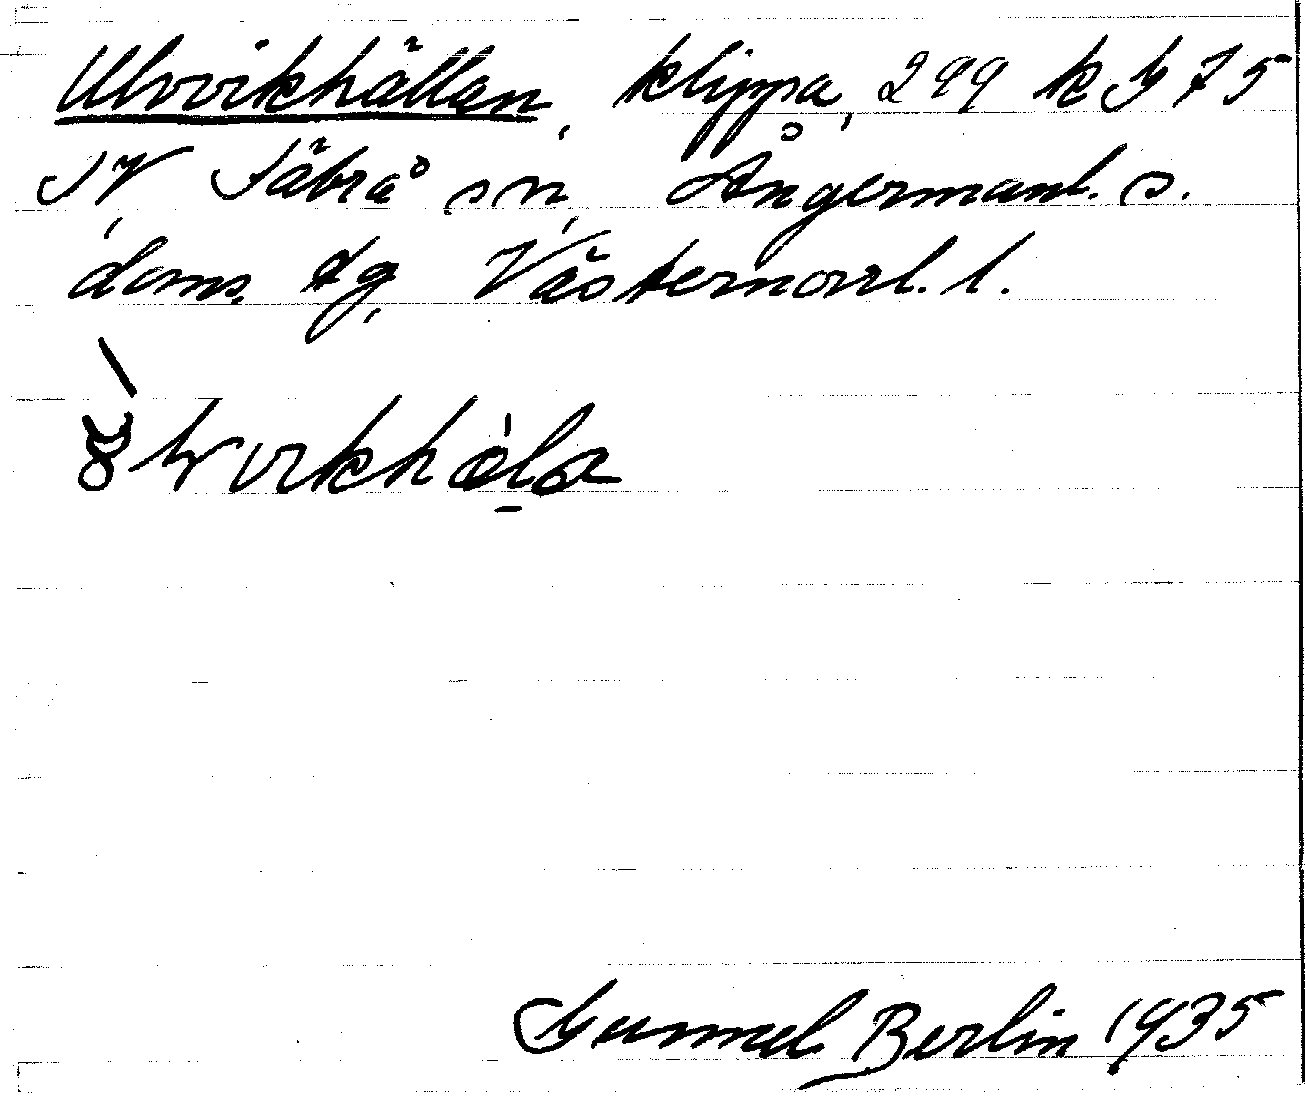 Ulvvikhällan, klippa, 299 k h 75
SV, Säbrå sn, Ångermanl. s.
doms. dg, Västernorrl. l.
Gunnel Berlin 1935